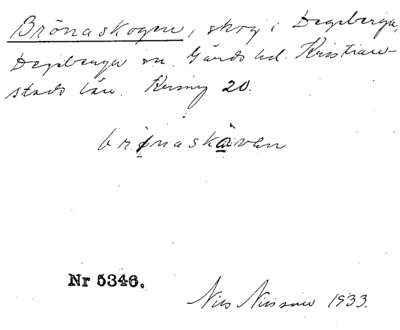 Brönaskogen, skog i Degeberga,
Degeberga sn. Gärds hd. Kristian-
stads län. Rening 20.
brønaskåven
Nr 5346.
Nils Nilsson 1933.